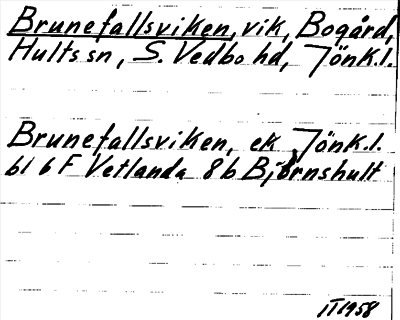 Brunefallsviken, vik, Bogård,
Hults sn, S. Vedbo hd, Jönk.l.
Brunefallsviken, ek Jönk.l.
bl 6 F Vetlanda 8 b Björnshult
II 1958